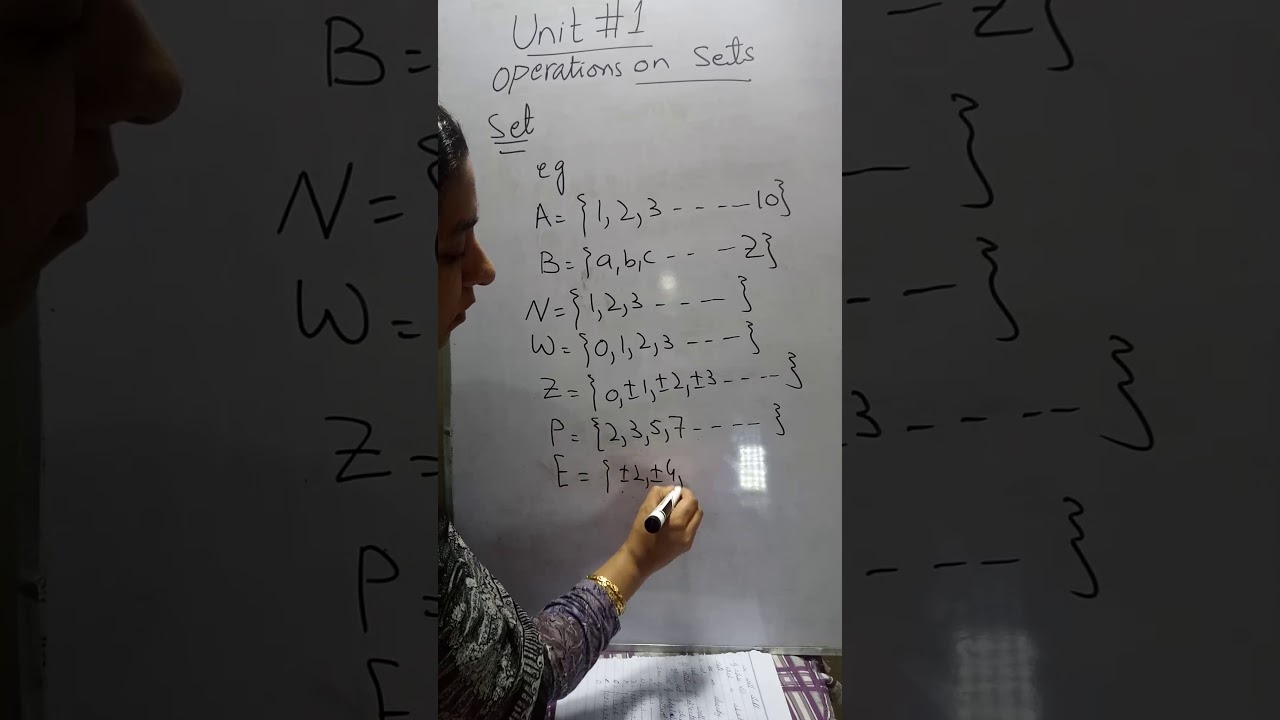 Unit #1
operations on Sets
Set
eg
A = {1, 2, 3 - - - - - 10}
B = {a, b, c - - - - Z}
N = {1, 2, 3 - - - - }
W = {0, 1, 2, 3 - - - - }
Z = {0, ±1, ±2, ±3 - - - - - }
P = {2, 3, 5, 7 - - - - - }
E = {±2, ±4,